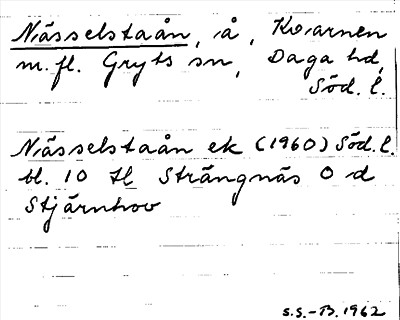 Nässelstaån, å, Kvarnen
m.fl. Gryts sn, Daga hd,
Söd. l.
Nässelstaån ek (1960) Söd. l.
bl. 10 tl Strängnäs O d
Stjärnhov
S.S.-B. 1962